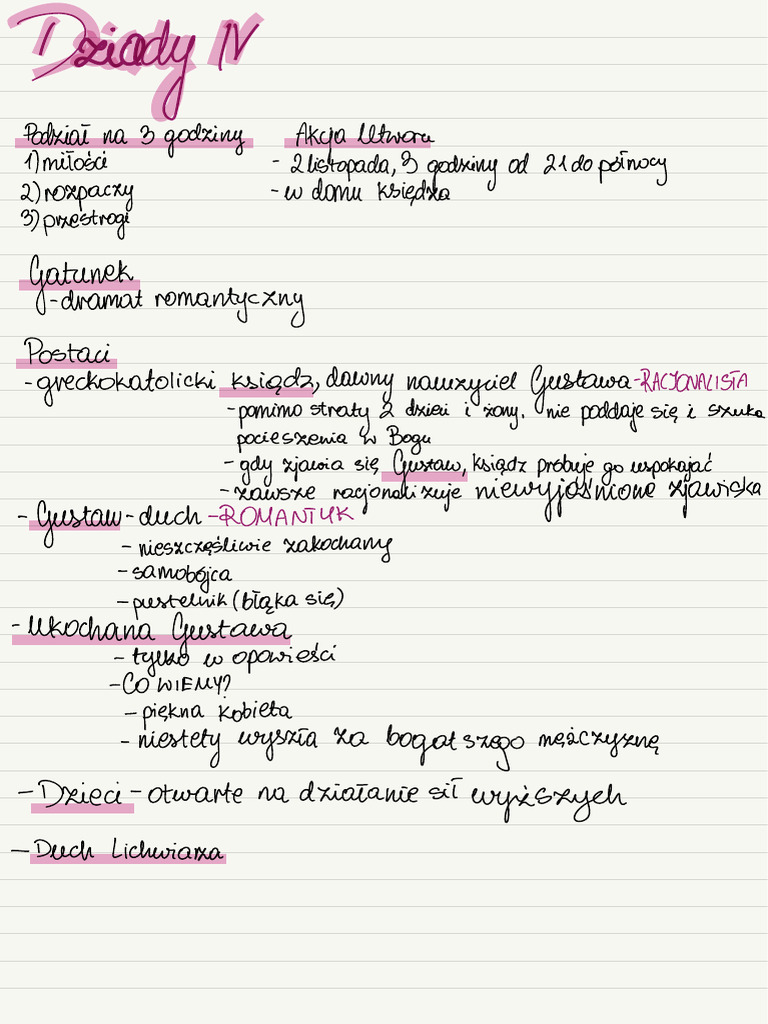 Dziady IV
Podział na 3 godziny
1) miłości
2) rozpaczy
3) przestrogi
Akcja Utworu
- 2 listopada, 3 godziny od 21 do północy
- w domu księdza
Gatunek
- dramat romantyczny
Postaci
- greckokatolicki ksiądz, dawny nauczyciel Gustawa - RACJONALISTA
- pomimo straty 2 dzieci i żony. nie poddaje się i szuka
pocieszenia w Bogu
- gdy zjawia się Gustaw, ksiądz próbuje go uspokajać
- zawsze racjonalizuje niewyjaśnione zjawiska
- Gustaw - duch - ROMANTYK
- nieszczęśliwie zakochany
- samobójca
- pustelnik (błąka się)
- Ukochana Gustawa
- tylko w opowieści
- CO WIEMY?
- piękna kobieta
- niestety wyszła za bogatszego mężczyznę
- Dzieci - otwarte na działanie sił wyższych
- Duch Lichwiarza